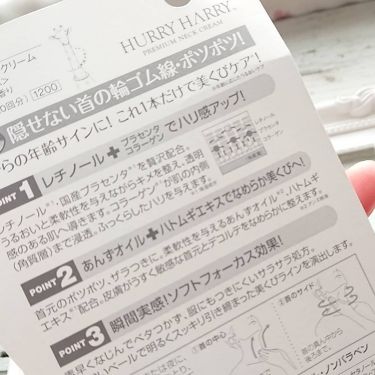 HURRY HARRY®
PREMIUM NECK CREAM
クリーム
香り
0回分) 1200
隠せない首の輪ゴム線・ポツポツ!
らの年齢サインに! これ1本だけで美くびケア!
POINT 1 レチノール+プラセンタ コラーゲンでハリ感アップ!
レチノール
コラーゲン
チノール、国産プラセンタを贅沢配合。
うるおいと柔軟性を与えながらキメを整え、透明
感のある肌へ導きます。コラーゲンが肌の内側
(角質層)まで浸透。ふっくらしたハリを与えます。
POINT 2 あんずオイル+ハトムギエキスでなめらか美くびへ!
首元のポツポツ、ザラつきに。柔軟性を与えるあんずオイル、ハトムギ
エキス配合。皮膚がうすく敏感な首元とデコルテをなめらかに整えます。
POINT 3 瞬間実感!ソフトフォーカス効果!
素早くなじんでベタつかず、服にもつきにくいサラサラ処方。
ベールで明るくスッキリ引き締まった美くびラインを演出します。
首の中心
首のサイド
首の真ん中から
後ろまで。
・ノンパラベン